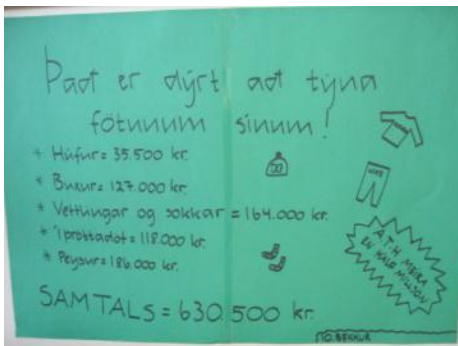 Það er dýrt að týna
fötunum sínum!
* Húfur = 35.500 kr.
* Buxur = 127.000 kr.
* Vettlingar og sokkar = 164.000 kr.
* Íþróttadót = 118.000 kr.
* Peysur = 186.000 kr.
SAMTALS = 630.500 kr.
ATH MEIRA
EN HÁLF MILLJÓN
10. BEKKUR